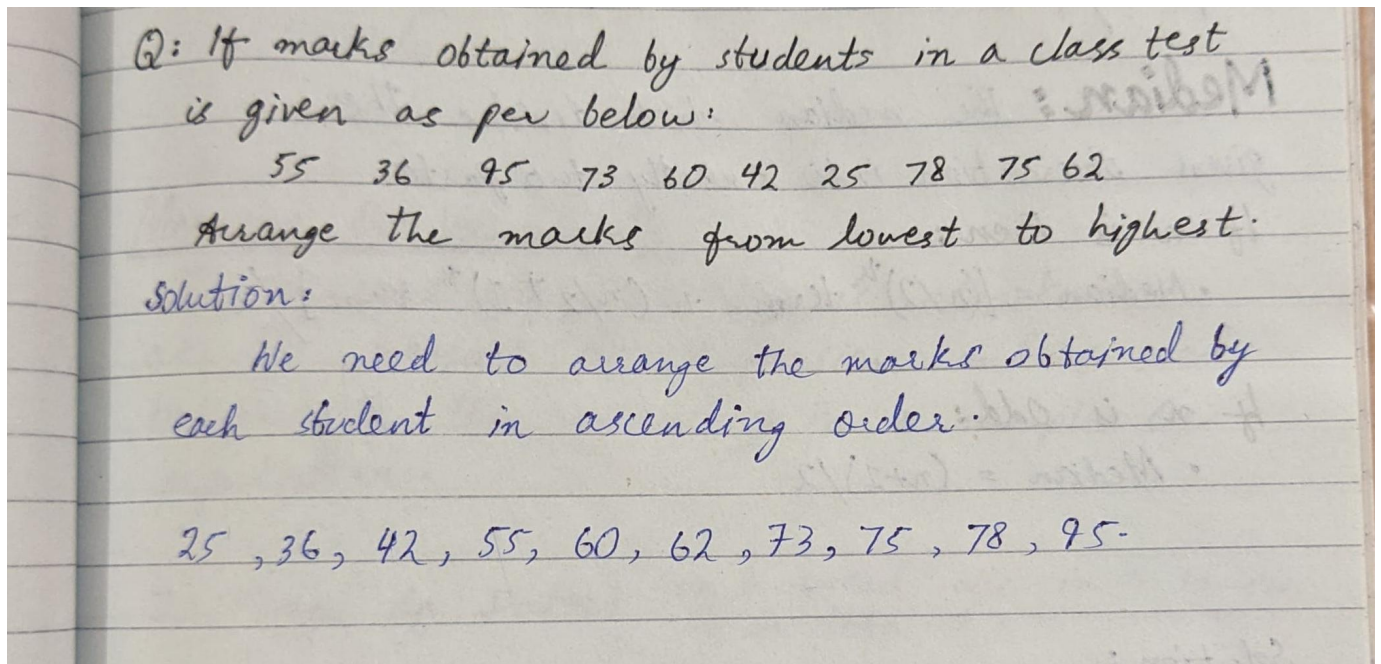 Q: If marks obtained by students in a class test
is given as per below:
55 36 95 73 60 42 25 78 75 62
Arrange the marks from lowest to highest.
Solution:
We need to arrange the marks obtained by
each student in ascending order.
25, 36, 42, 55, 60, 62, 73, 75, 78, 95.